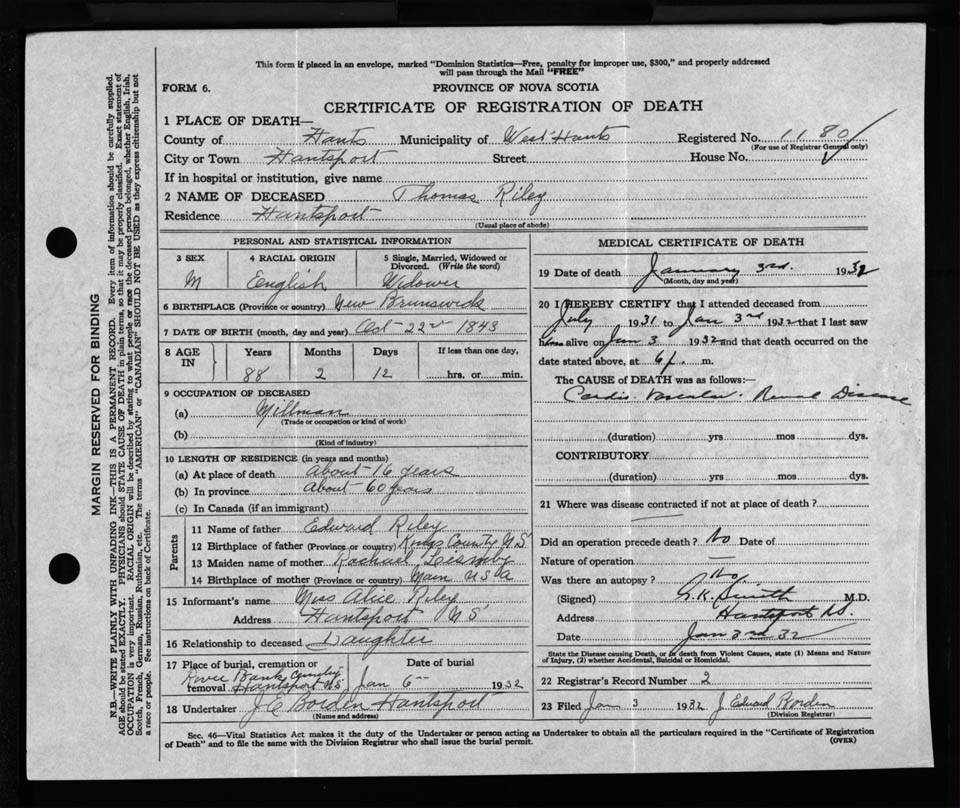 This form if placed in an envelope, marked "Dominion Statistics—Free, penalty for improper use, $300," and properly addressed
will pass through the Mail "FREE"
FORM 6.
PROVINCE OF NOVA SCOTIA
CERTIFICATE OF REGISTRATION OF DEATH
1 PLACE OF DEATH—
County of Hants Municipality of West Hants Registered No. 1180
(For use of Registrar General only)
City or Town Hantsport Street House No.
If in hospital or institution, give name
2 NAME OF DECEASED Thomas Riley
Residence Hantsport
(Usual place of abode)
PERSONAL AND STATISTICAL INFORMATION
3 SEX 4 RACIAL ORIGIN 5 Single, Married, Widowed or
Divorced. (Write the word)
M English Widower
6 BIRTHPLACE (Province or country) New Brunswick
7 DATE OF BIRTH (month, day and year) Oct - 22nd 1843
8 AGE IN Years Months Days If less than one day,
88 2 12 hrs. or min.
9 OCCUPATION OF DECEASED
(a) Millman
(Trade or occupation or kind of work)
(b)
(Kind of industry)
10 LENGTH OF RESIDENCE (in years and months)
(a) At place of death About 16 years
(b) In province About 60 years
(c) In Canada (if an immigrant)
Parents
11 Name of father Edward Riley
12 Birthplace of father (Province or country) Kings County N S
13 Maiden name of mother Rachael
14 Birthplace of mother (Province or country) Main U S A
15 Informant's name Miss Alice Riley
Address Hantsport N S
16 Relationship to deceased Daughter
17 Place of burial, cremation or Date of burial
River Bank Cemetry
removal Hantsport N S Jan 6 1932
18 Undertaker J E Borden Hantsport
(Name and address)
MEDICAL CERTIFICATE OF DEATH
19 Date of death January 3rd. 1932
(Month, day and year)
20 I HEREBY CERTIFY that I attended deceased from
July 1931 to Jan 3rd 1932 that I last saw
him alive on Jan 3 1932 and that death occurred on the
date stated above, at 6 p. m.
The CAUSE OF DEATH was as follows:—
Cardio. Vascular. Renal Disease
(duration) yrs mos dys.
CONTRIBUTORY
(duration) yrs. mos. dys.
21 Where was disease contracted if not at place of death?
Did an operation precede death? No Date of
Nature of operation —
Was there an autopsy? No.
(Signed) Smith M.D.
Address Hantsport N.S.
Date Jan 3rd 32
State the Disease causing Death, or in death from Violent Causes, state (1) Means and Nature
of Injury, (2) whether Accidental, Suicidal or Homicidal.
22 Registrar's Record Number 2
23 Filed Jan 3 1932 J Edward Borden
(Division Registrar)
Sec. 46—Vital Statistics Act makes it the duty of the Undertaker or person acting as Undertaker to obtain all the particulars required in the "Certificate of Registration
of Death" and to file the same with the Division Registrar who shall issue the burial permit. (OVER)
MARGIN RESERVED FOR BINDING
N.B.—WRITE PLAINLY WITH UNFADING INK—THIS IS A PERMANENT RECORD. Every item of information should be carefully supplied.
AGE should be stated EXACTLY. PHYSICIANS should STATE CAUSE OF DEATH in plain terms, so that it may be properly classified. Exact statement of
OCCUPATION is very important. RACIAL ORIGIN will be described by stating to what people or race the deceased person belonged, whether English, Irish,
Scotch, French, German, Russian, Ruthenian, etc. The terms "AMERICAN" or "CANADIAN" SHOULD NOT BE USED as they express citizenship but not
a race or people. See instructions on back of Certificate.